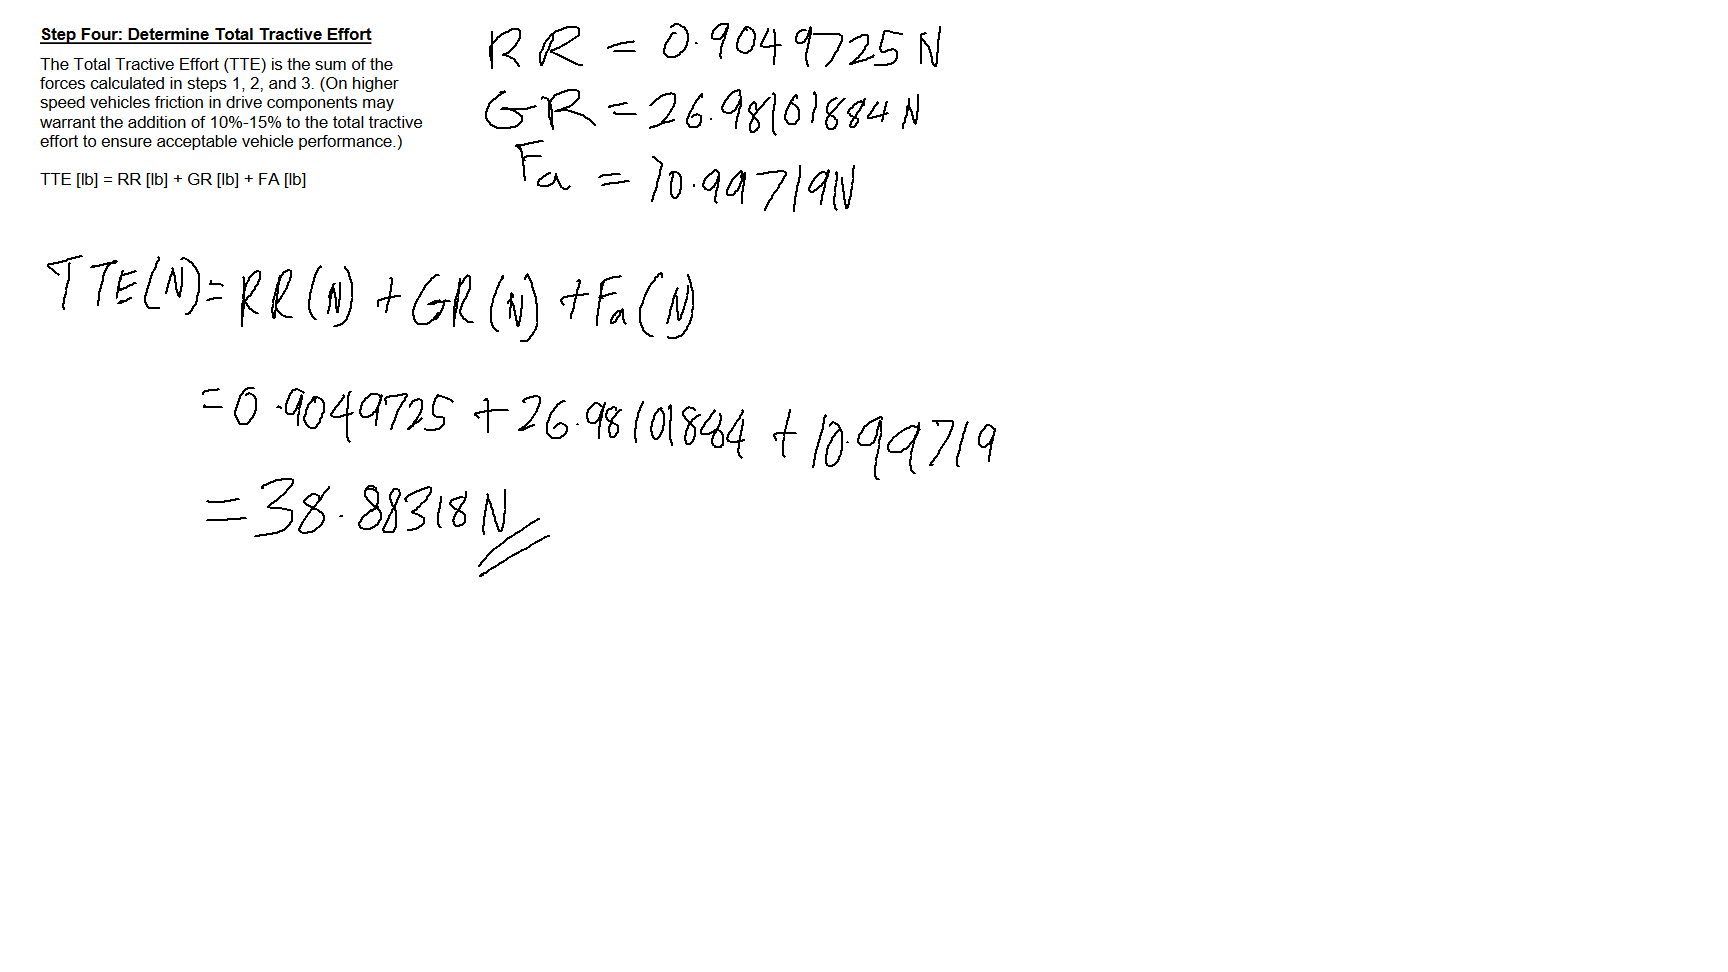 Step Four: Determine Total Tractive Effort
The Total Tractive Effort (TTE) is the sum of the
forces calculated in steps 1, 2, and 3. (On higher
speed vehicles friction in drive components may
warrant the addition of 10%-15% to the total tractive
effort to ensure acceptable vehicle performance.)
TTE [lb] = RR [lb] + GR [lb] + FA [lb]
RR = 0.9049725 N
GR = 26.98101884 N
Fa = 10.99719N
TTE(N)= RR(N) + GR(N) + Fa(N)
= 0.9049725 + 26.98101884 + 10.99719
= 38.88318 N